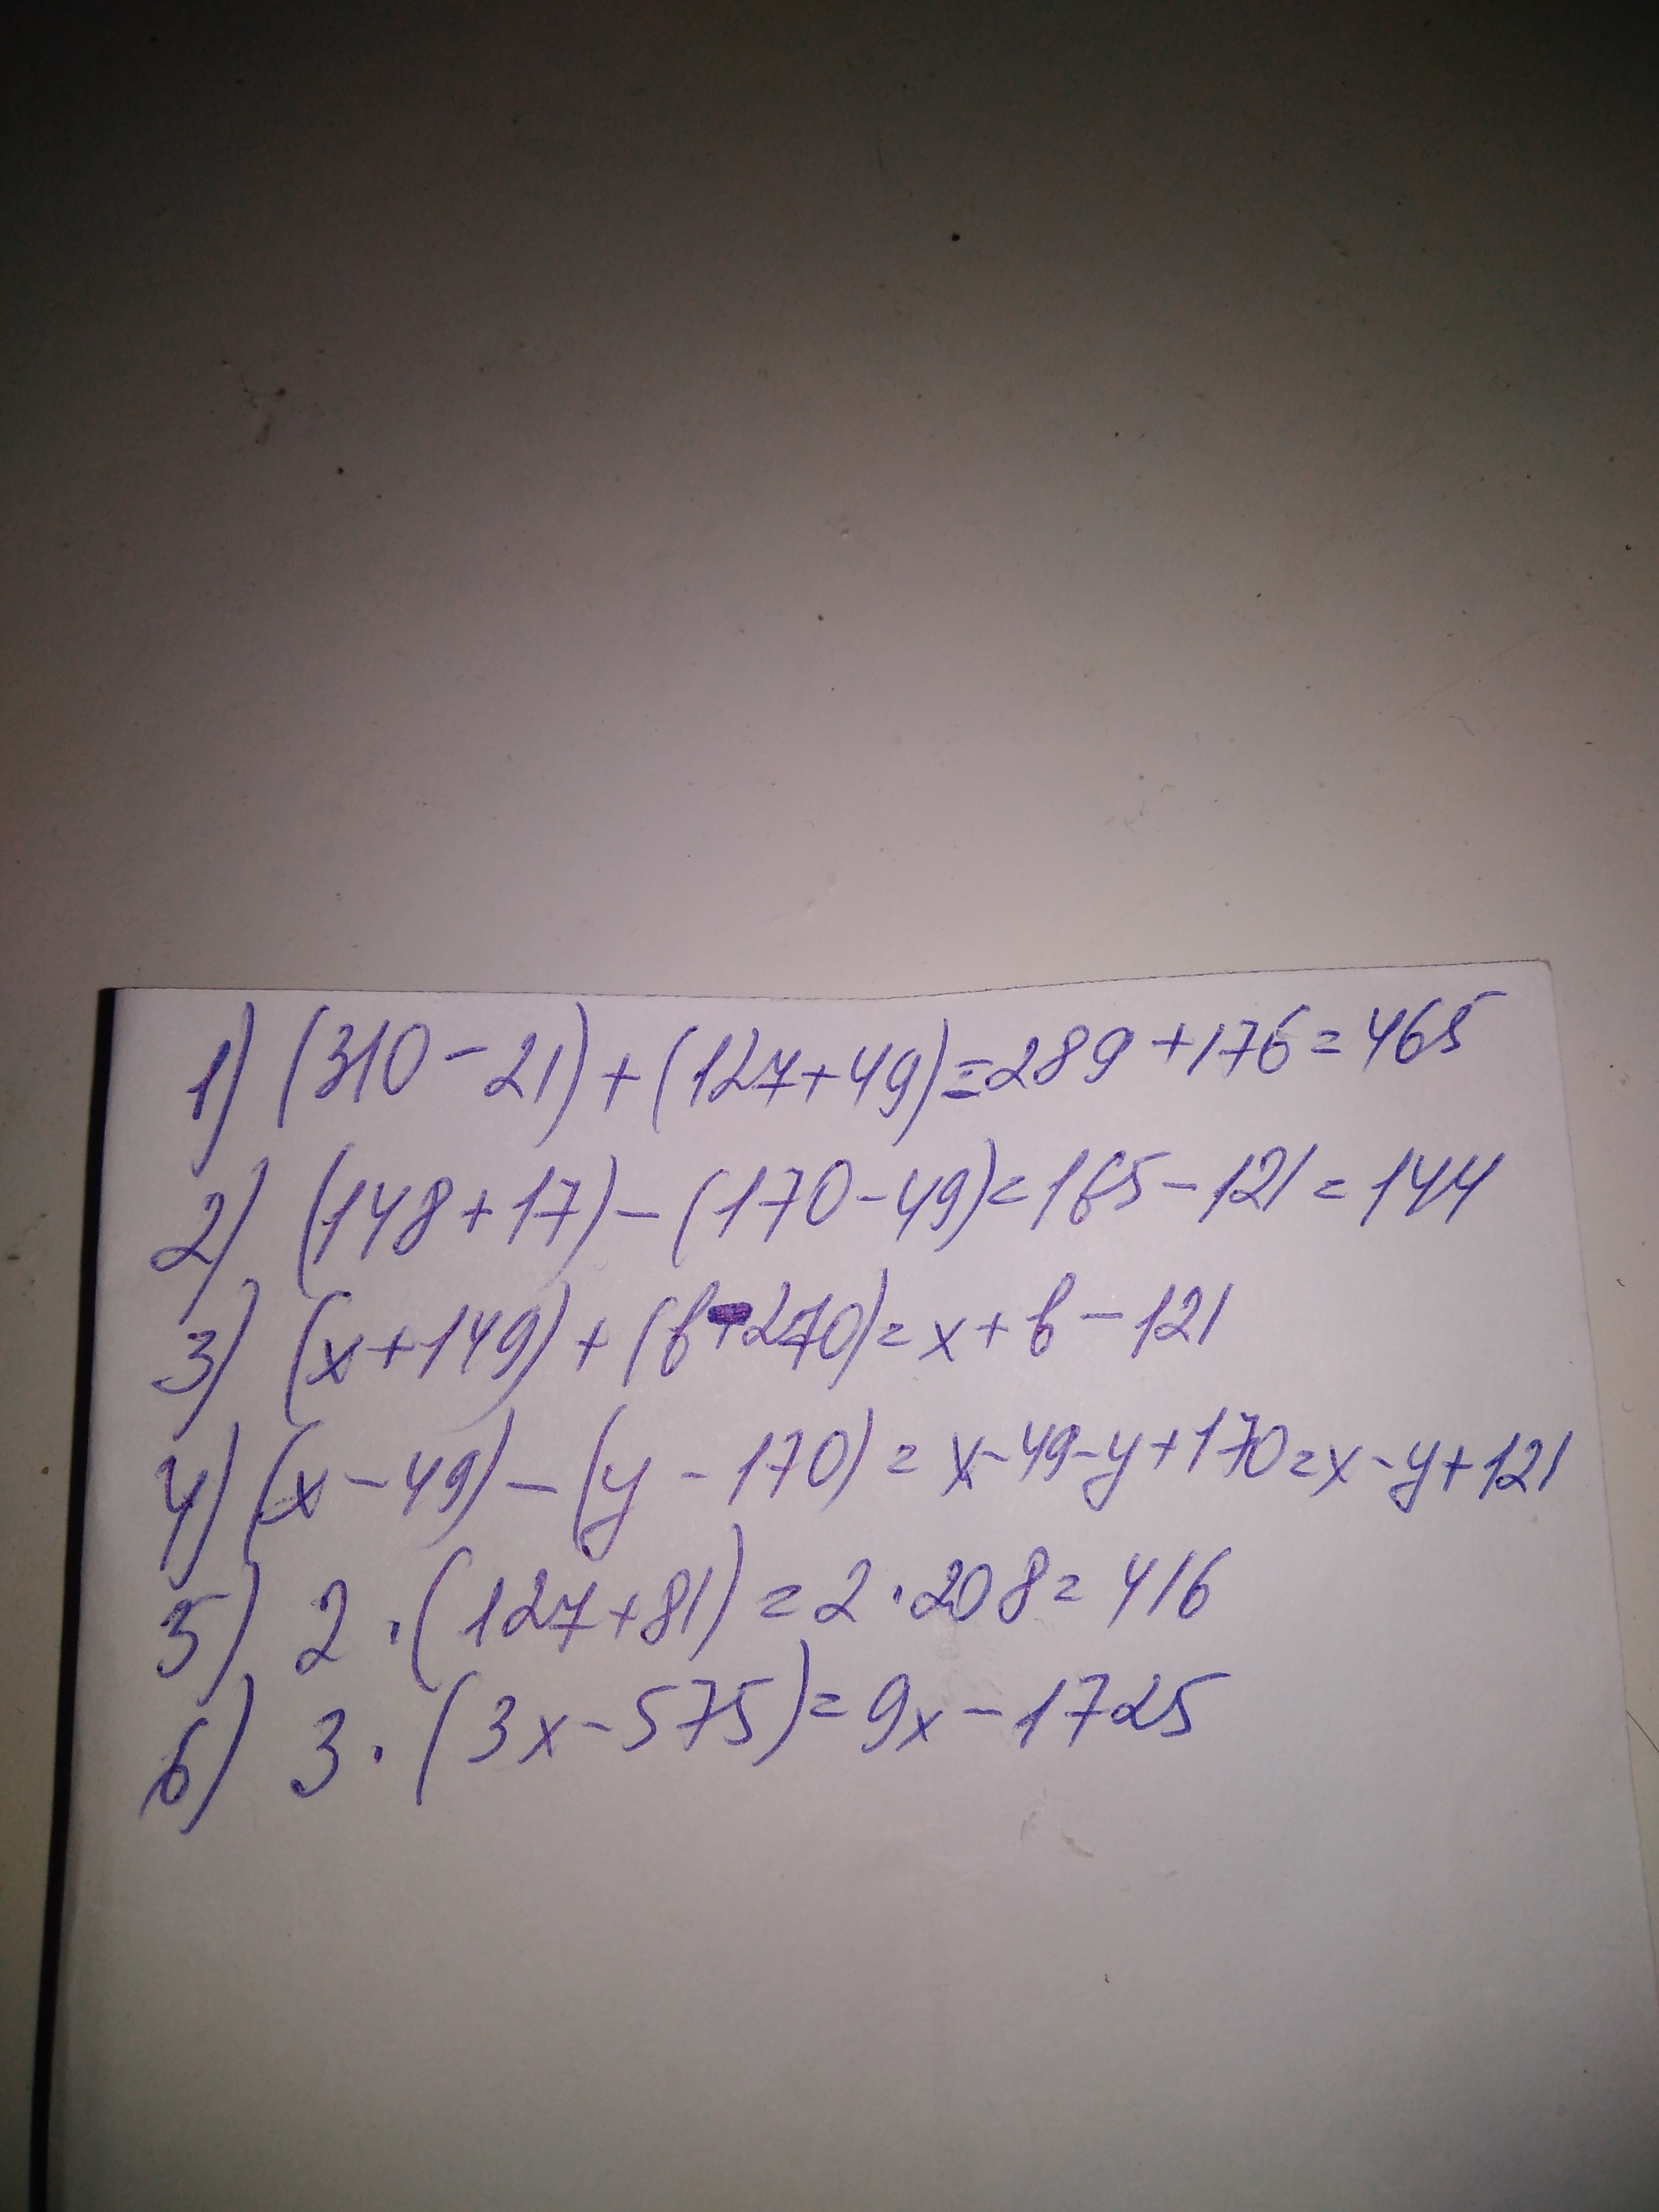 1) (310 - 21) + (127 + 49) = 289 + 176 = 465
2) (148 + 17) - (170 - 49) = 165 - 121 = 144
3) (x + 149) + (b - 270) = x + b - 121
4) (x - 49) - (y - 170) = x - 49 - y + 170 = x - y + 121
5) 2 · (127 + 81) = 2 · 208 = 416
6) 3 · (3x - 575) = 9x - 1725